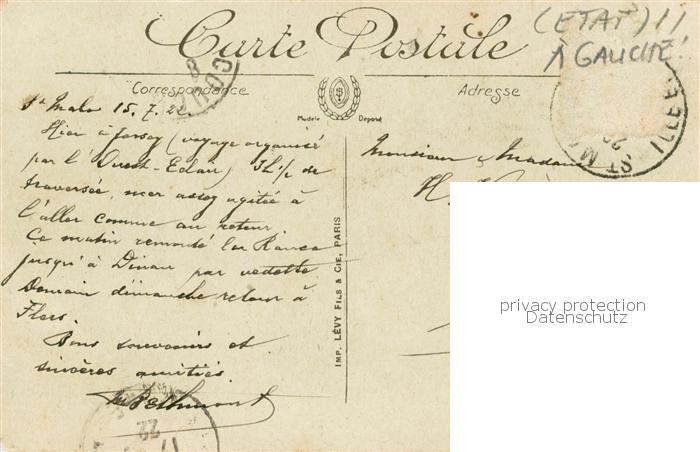 (ETAT) !!
A GAUCHE!
Carte Postale
Correspondance
Adresse
Modèle Déposé
St Malo 15.7.22
Hier à Jersey (voyage organisé
par l'Ouest-Eclair) 3h ½ de
traversée, mer assez agitée à
l'aller comme au retour.
Ce matin remonté la Rance
jusqu'à Dinan par vedette
Demain dimanche retour à
Flers.
Bons souvenirs et
sincères amitiés
Monsieur & Madame
H.
IMP. LÉVY FILS & CIE, PARIS
privacy protection
Datenschutz
ST M
ILLE-E
22